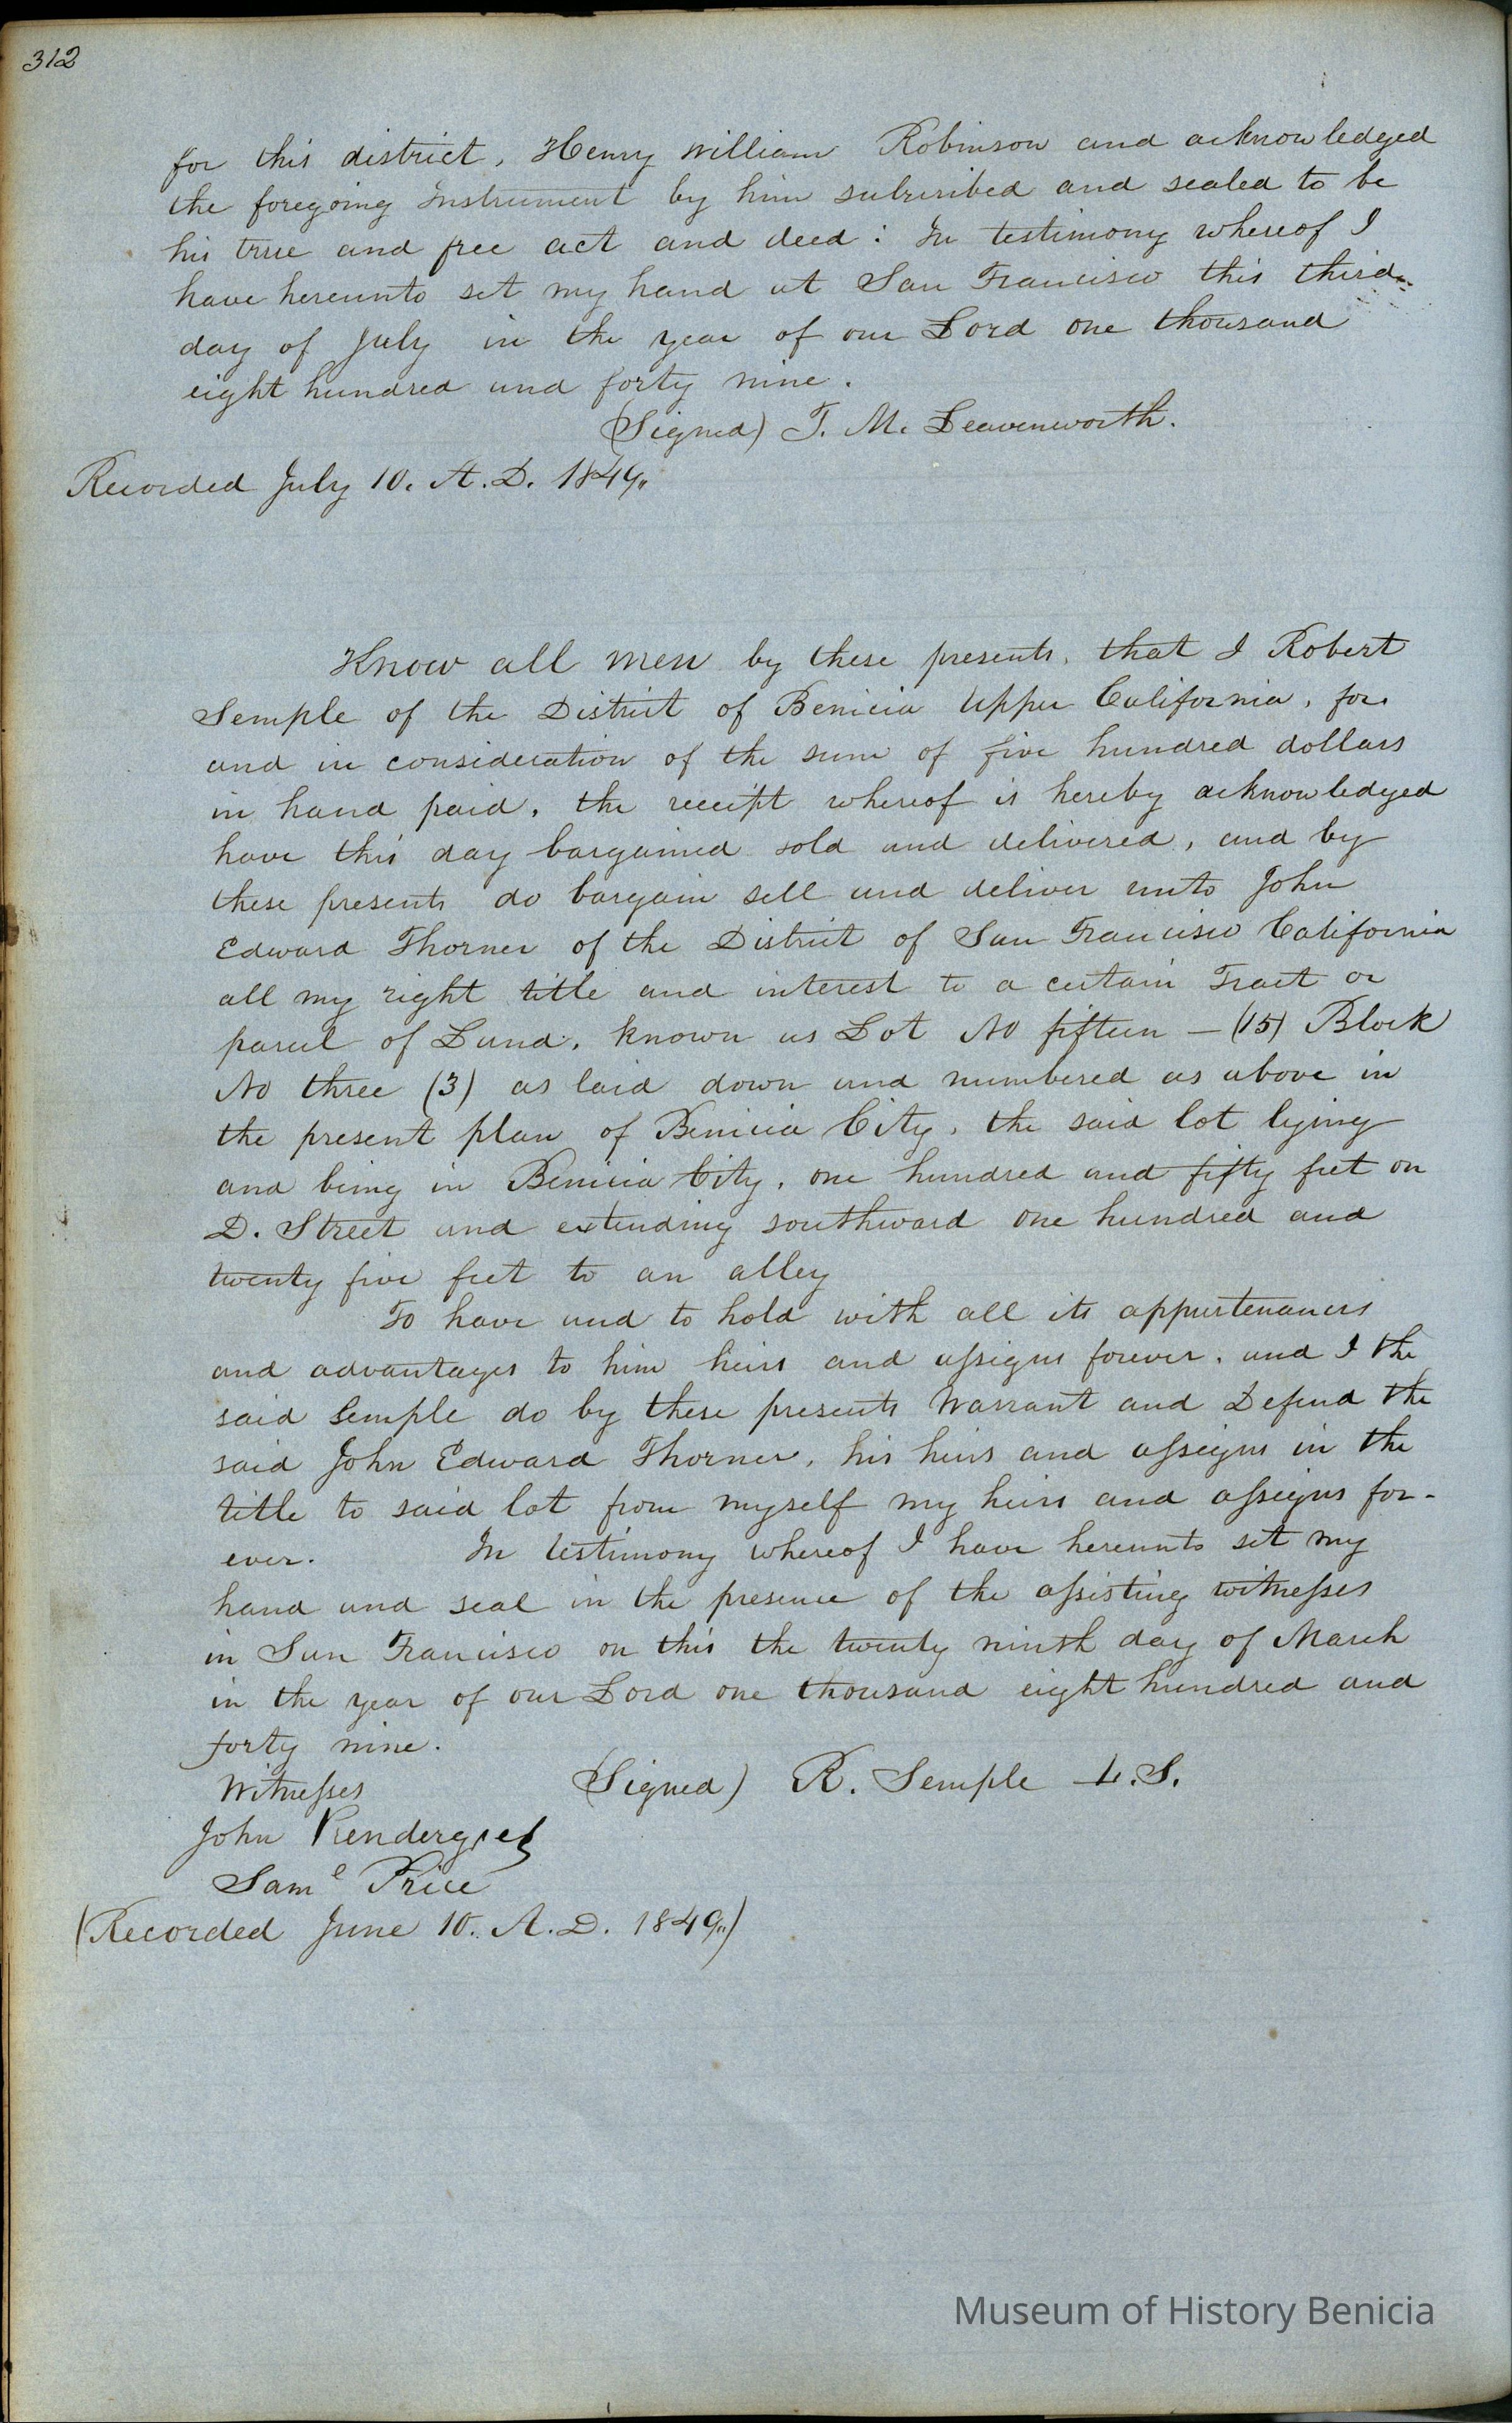 312
for this district, Henry William Robinson and acknowledged
the foregoing Instrument by him subscribed and sealed to be
his true and free act and deed: In testimony whereof I
have hereunto set my hand at San Francisco this third
day of July in the year of our Lord one thousand
eight hundred and forty nine.
(Signed) T. M. Leavenworth.
Recorded July 10. A.D. 1849.
Know all men by these presents, that I Robert
Semple of the District of Benicia Upper California, for
and in consideration of the sum of five hundred dollars
in hand paid, the receipt whereof is hereby acknowledged
have this day bargained sold and delivered, and by
these presents do bargain sell and deliver unto John
Edward Thorner of the District of San Francisco California
all my right title and interest to a certain Tract or
parcel of Land, known as Lot No fifteen — (15) Block
No three (3) as laid down and numbered as above in
the present plan of Benicia City, the said lot lying
and being in Benicia City, one hundred and fifty feet on
D. Street and extending southward one hundred and
twenty five feet to an alley
To have and to hold with all its appurtenances
and advantages to him heirs and assigns forever, and I the
said Semple do by these presents Warrant and Defend the
said John Edward Thorner, his heirs and assigns in the
title to said lot from myself my heirs and assigns for-
ever. In testimony whereof I have hereunto set my
hand and seal in the presence of the assisting witnesses
in San Francisco on this the twenty ninth day of March
in the year of our Lord one thousand eight hundred and
forty nine.
Witnesses (Signed) R. Semple L.S.
John
Saml Price
(Recorded June 10. A.D. 1849.)
Museum of History Benicia